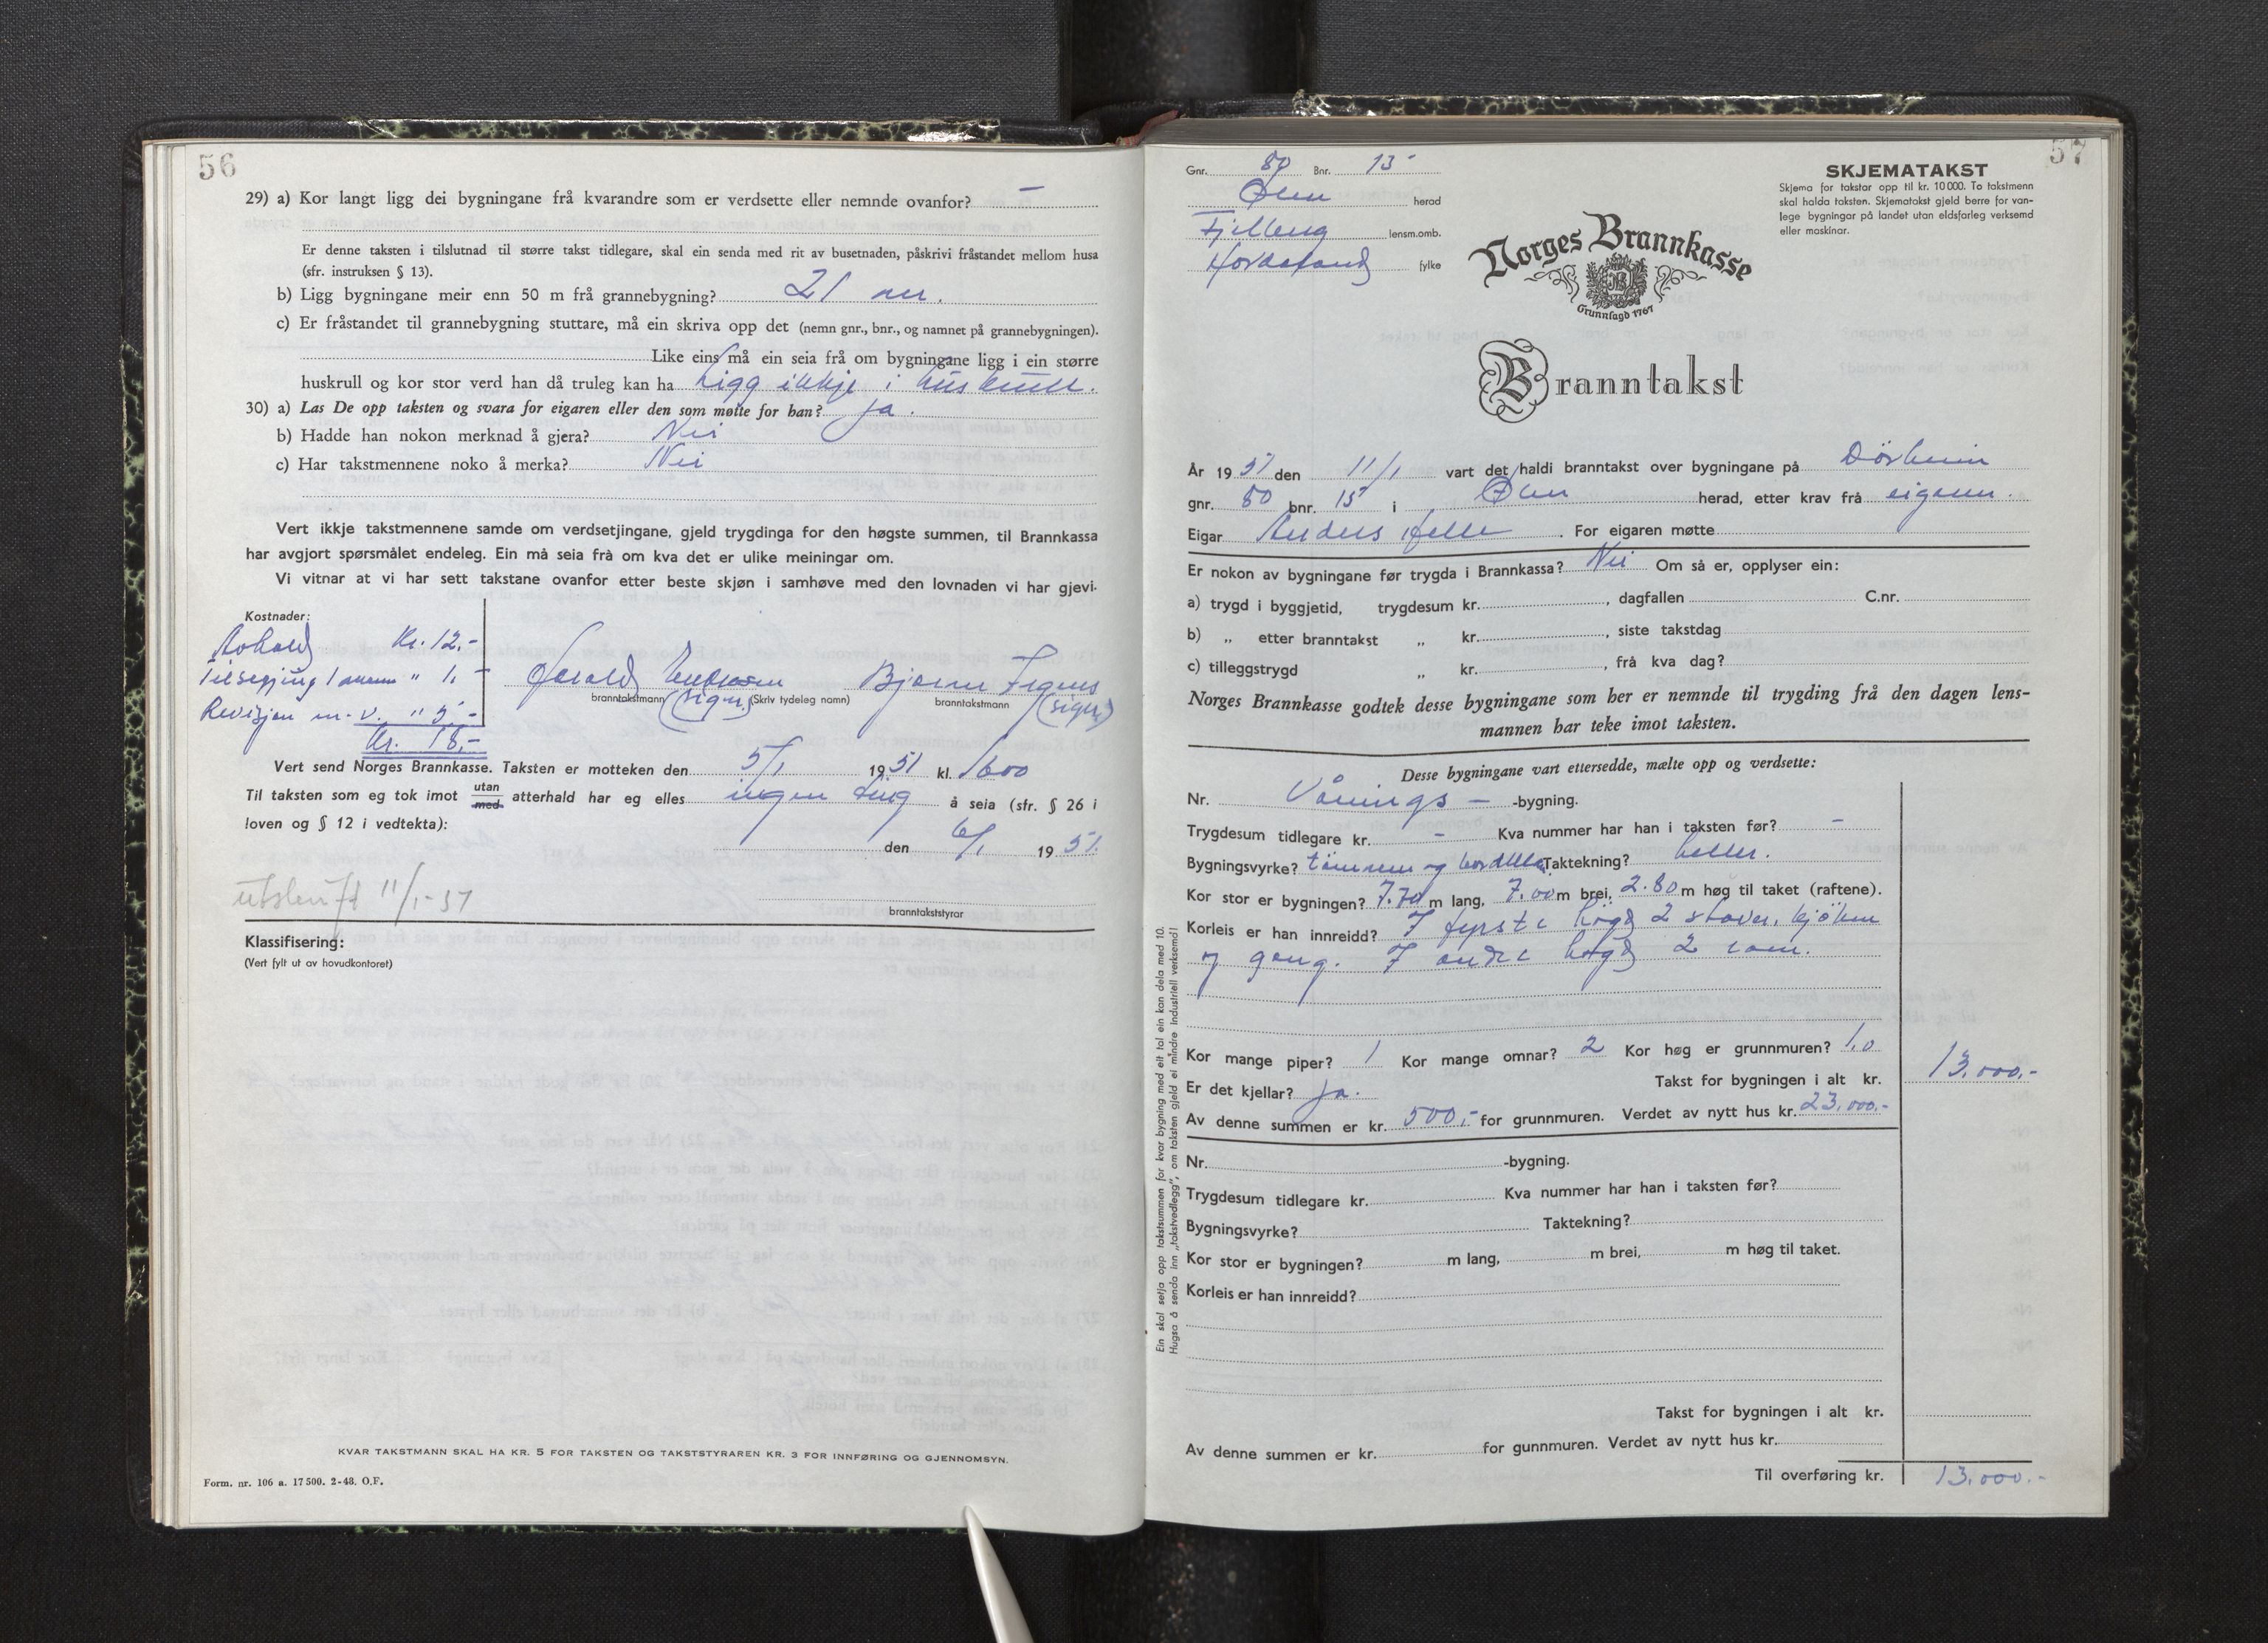 56
29) a) Kor langt ligg dei bygningane frå kvarandre som er verdsette eller nemnde ovanfor? –
Er denne taksten i tilslutnad til større takst tidlegare, skal ein senda med rit av busetnaden, påskrivi fråstandet mellom husa
(sfr. instruksen § 13).
b) Ligg bygningane meir enn 50 m frå grannebygning? 21 m.
c) Er fråstandet til grannebygning stuttare, må ein skriva opp det (nemn gnr., bnr., og namnet på grannebygningen).
Like eins må ein seia frå om bygningane ligg i ein større
huskrull og kor stor verd han då truleg kan ha Ligg ikkje i huskrull.
30) a) Las De opp taksten og svara for eigaren eller den som møtte for han? ja.
b) Hadde han nokon merknad å gjera? Nei
c) Har takstmennene noko å merka? Nei
Vert ikkje takstmennene samde om verdsetjingane, gjeld trygdinga for den høgste summen, til Brannkassa
har avgjort spørsmålet endeleg. Ein må seia frå om kva det er ulike meiningar om.
Vi vitnar at vi har sett takstane ovanfor etter beste skjøn i samhøve med den lovnaden vi har gjevi.
Kostnader:
Kr. 12.-
Tilsegjing 1 mann " 1.-
Revisjon m.v. " 5.-
Kr. 18.-
Harald (sign.) Bjarne (sign)
branntakstmann (Skriv tydeleg namn) branntakstmann
Vert send Norges Brannkasse. Taksten er motteken den 5/1 1951 kl. 1600
Til taksten som eg tok imot utan med atterhald har eg elles ingen ting å seia (sfr. § 26 i
loven og § 12 i vedtekta):
den 6/1 1951.
utskrift 11/1-51
branntakststyrar
Klassifisering:
(Vert fylt ut av hovudkontoret)
KVAR TAKSTMANN SKAL HA KR. 5 FOR TAKSTEN OG TAKSTSTYRAREN KR. 3 FOR INNFØRING OG GJENNOMSYN.
Form. nr. 106 a. 17 500. 2-48. O.F.
57
Gnr. 80 Bnr. 15
Ølen herad
Fjelberg lensm.omb.
Hordaland fylke
SKJEMATAKST
Skjema for takstar opp til kr. 10 000. To takstmenn
skal halda taksten. Skjematakst gjeld berre for van-
lege bygningar på landet utan eldsfarleg verksemd
eller maskinar.
Norges Brannkasse
Grunnlagd 1767
Branntakst
År 1951 den 11/1 vart det haldi branntakst over bygningane på
gnr. 80 bnr. 15 i Ølen herad, etter krav frå eigaren.
Eigar Anders . For eigaren møtte
Er nokon av bygningane før trygda i Brannkassa? Nei Om så er, opplyser ein:
a) trygd i byggjetid, trygdesum kr. , dagfallen C.nr.
b) „ etter branntakst „ kr. , siste takstdag
c) tilleggstrygd „ kr. , frå kva dag?
Norges Brannkasse godtek desse bygningane som her er nemnde til trygding frå den dagen lens-
mannen har teke imot taksten.
Desse bygningane vart ettersedde, mælte opp og verdsette:
Nr. Vånings – -bygning.
Trygdesum tidlegare kr. – Kva nummer har han i taksten før? –
Bygningsvyrke? tømmer og bordkledd. Taktekning? heller.
Kor stor er bygningen? 7.70 m lang, 7.00 m brei, 2.80 m høg til taket (raftene).
Korleis er han innreidd? I fyrste høgd 2 stover, kjøken
og gang. I andre høgd 2 rom.
Kor mange piper? 1 Kor mange omnar? 2 Kor høg er grunnmuren? 1.0
Er det kjellar? ja. Takst for bygningen i alt kr. 13.000.-
Av denne summen er kr. 500,- for grunnmuren. Verdet av nytt hus kr. 23.000.-
Nr. -bygning.
Trygdesum tidlegare kr. Kva nummer har han i taksten før?
Bygningsvyrke? Taktekning?
Kor stor er bygningen? m lang, m brei, m høg til taket.
Korleis er han innreidd?
Takst for bygningen i alt kr.
Av denne summen er kr. for gunnmuren. Verdet av nytt hus kr.
Til overføring kr. 13.000.-
Ein skal setja opp takstsummen for kvar bygning med eit tal ein kan dela med 10.
Hugsa å senda inn „takstvedlegg", om taksten gjeld ei mindre industriell verksemd!